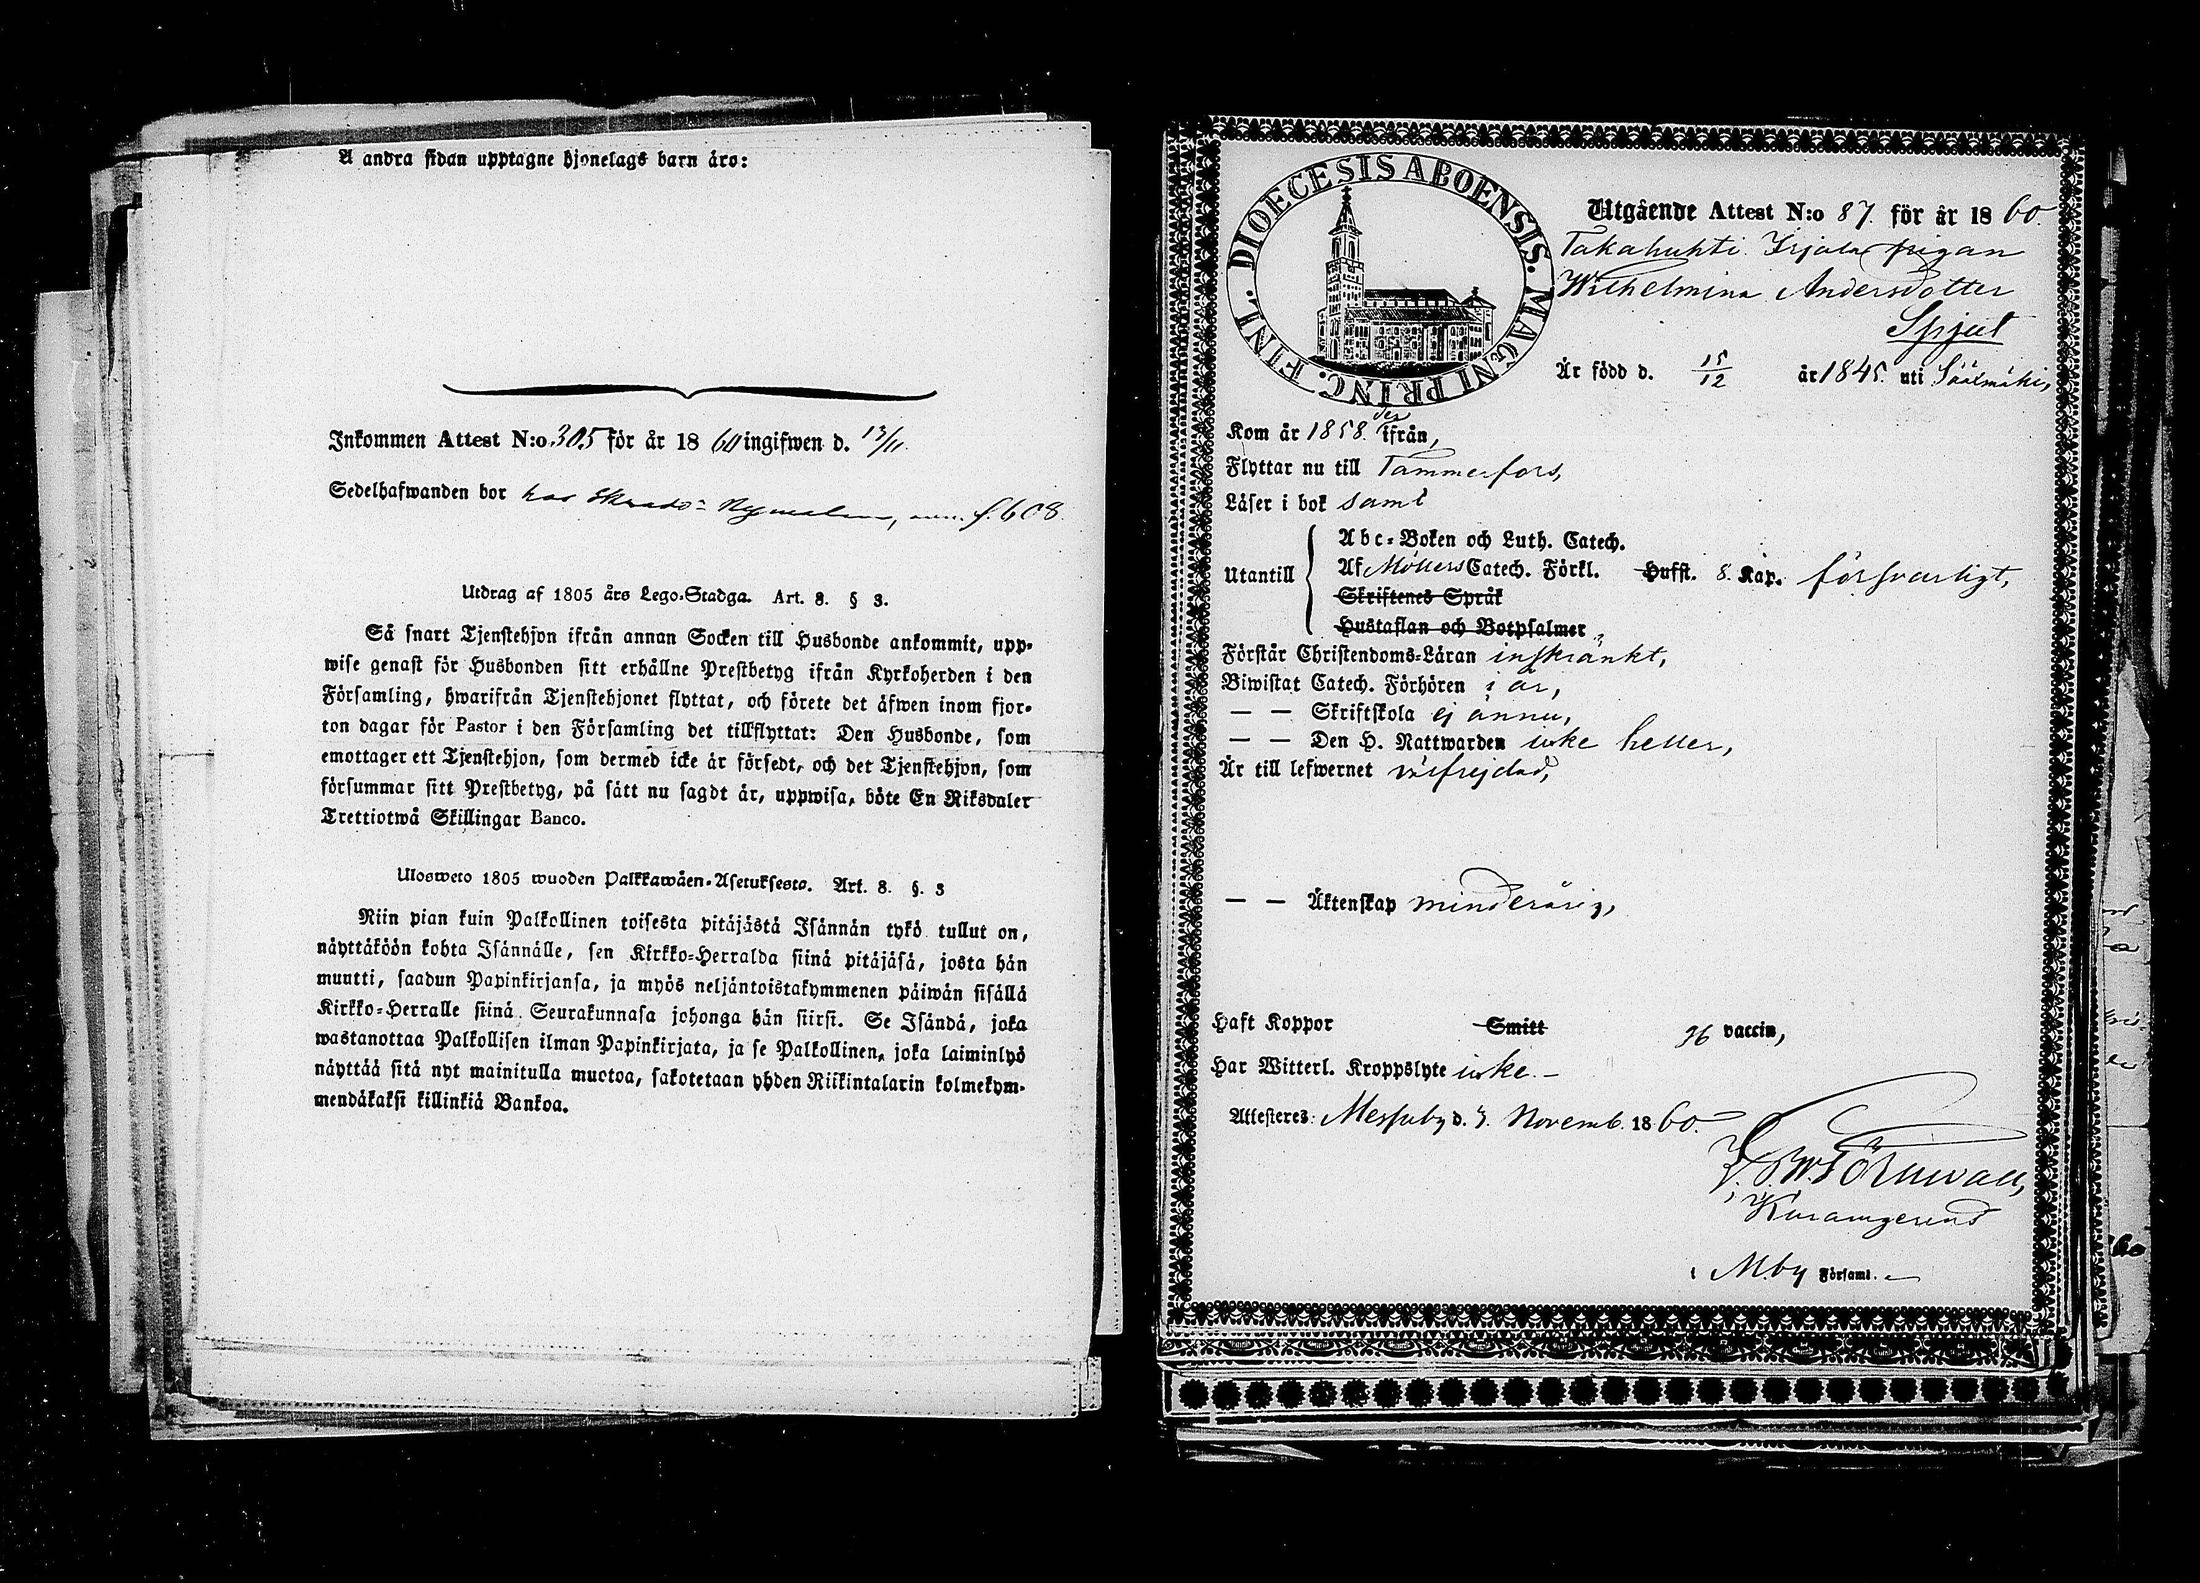 A andra sidan upptagne hjonelags barn äro:
Inkommen Attest N:o 305 för år 1860 ingifwen d. 13/11.
Sedelhafwanden bor hos f. 608
Utdrag af 1805 års Lego-Stadga. Art. 8. § 3.
Så snart Tjenstehjon ifrån annan Socken till Husbonde ankommit, upp-
wise genast för Husbonden sitt erhållne Prestbetyg ifrån Kyrkoherden i den
Församling, hwarifrån Tjenstehjonet flyttat, och förete det äfwen inom fjor-
ton dagar för Pastor i den Församling det tillflyttat: Den Husbonde, som
emottager ett Tjenstehjon, som dermed icke är försedt, och det Tjenstehjon, som
försummar sitt Prestbetyg, på sätt nu sagdt är, uppwisa, böte En Riksdaler
Trettiotwå Skillingar Banco.
Ulosweto 1805 wuoden Palkkawäen-Asetuksesta. Art. 8. §. 3
Niin pian kuin Palkollinen toisesta pitäjästä Isännän tykö tullut on,
näyttäköön kohta Isännälle, sen Kirkko-Herralda siinä pitäjäsä, josta hän
muutti, saadun Papinkirjansa, ja myös neljäntoistakymmenen päiwän sisällä
Kirkko-Herralle siinä Seurakunnasa johonga hän siirsi. Se Isändä, joka
wastanottaa Palkollisen ilman Papinkirjata, ja se Palkollinen, joka laiminlyö
näyttää sitä nyt mainitulla muotoa, sakotetaan yhden Riikintalarin kolmekym-
mendäkaksi killinkiä Bankoa.
DIOECESIS ABOENSIS. MAGNI PRINC. FINL.
Utgående Attest N:o 87. för år 1860.
Takahuhti Irjala pigan
Wilhelmina Andersdotter
Spjut
Är född d. 15/12 år 1845. uti Sääxmäki,
Kom år 1858. der ifrån,
Flyttar nu till Tammerfors,
Läser i bok samt
Utantill
Abc-Boken och Luth. Catech.
Af Möllers Catech. Förkl. Hufst. 8. Kap. försvarligt,
Skriftenes Språk
Hustaflan och Botpsalmer
Förstår Christendoms-Läran inskränkt,
Biwistat Catech. Förhören i år,
— — Skriftskola ej ännu,
— — Den H. Nattwarden icke heller,
Är till lefwernet välfrejdad,
— — Äktenskap minderårig,
Haft Koppor Smitt vaccin,
Har Witterl. Kroppslyte icke. —
Attesteres: Messuby d. 3. Novemb. 1860.
F. W. Törnwall,
i Mby Församl.